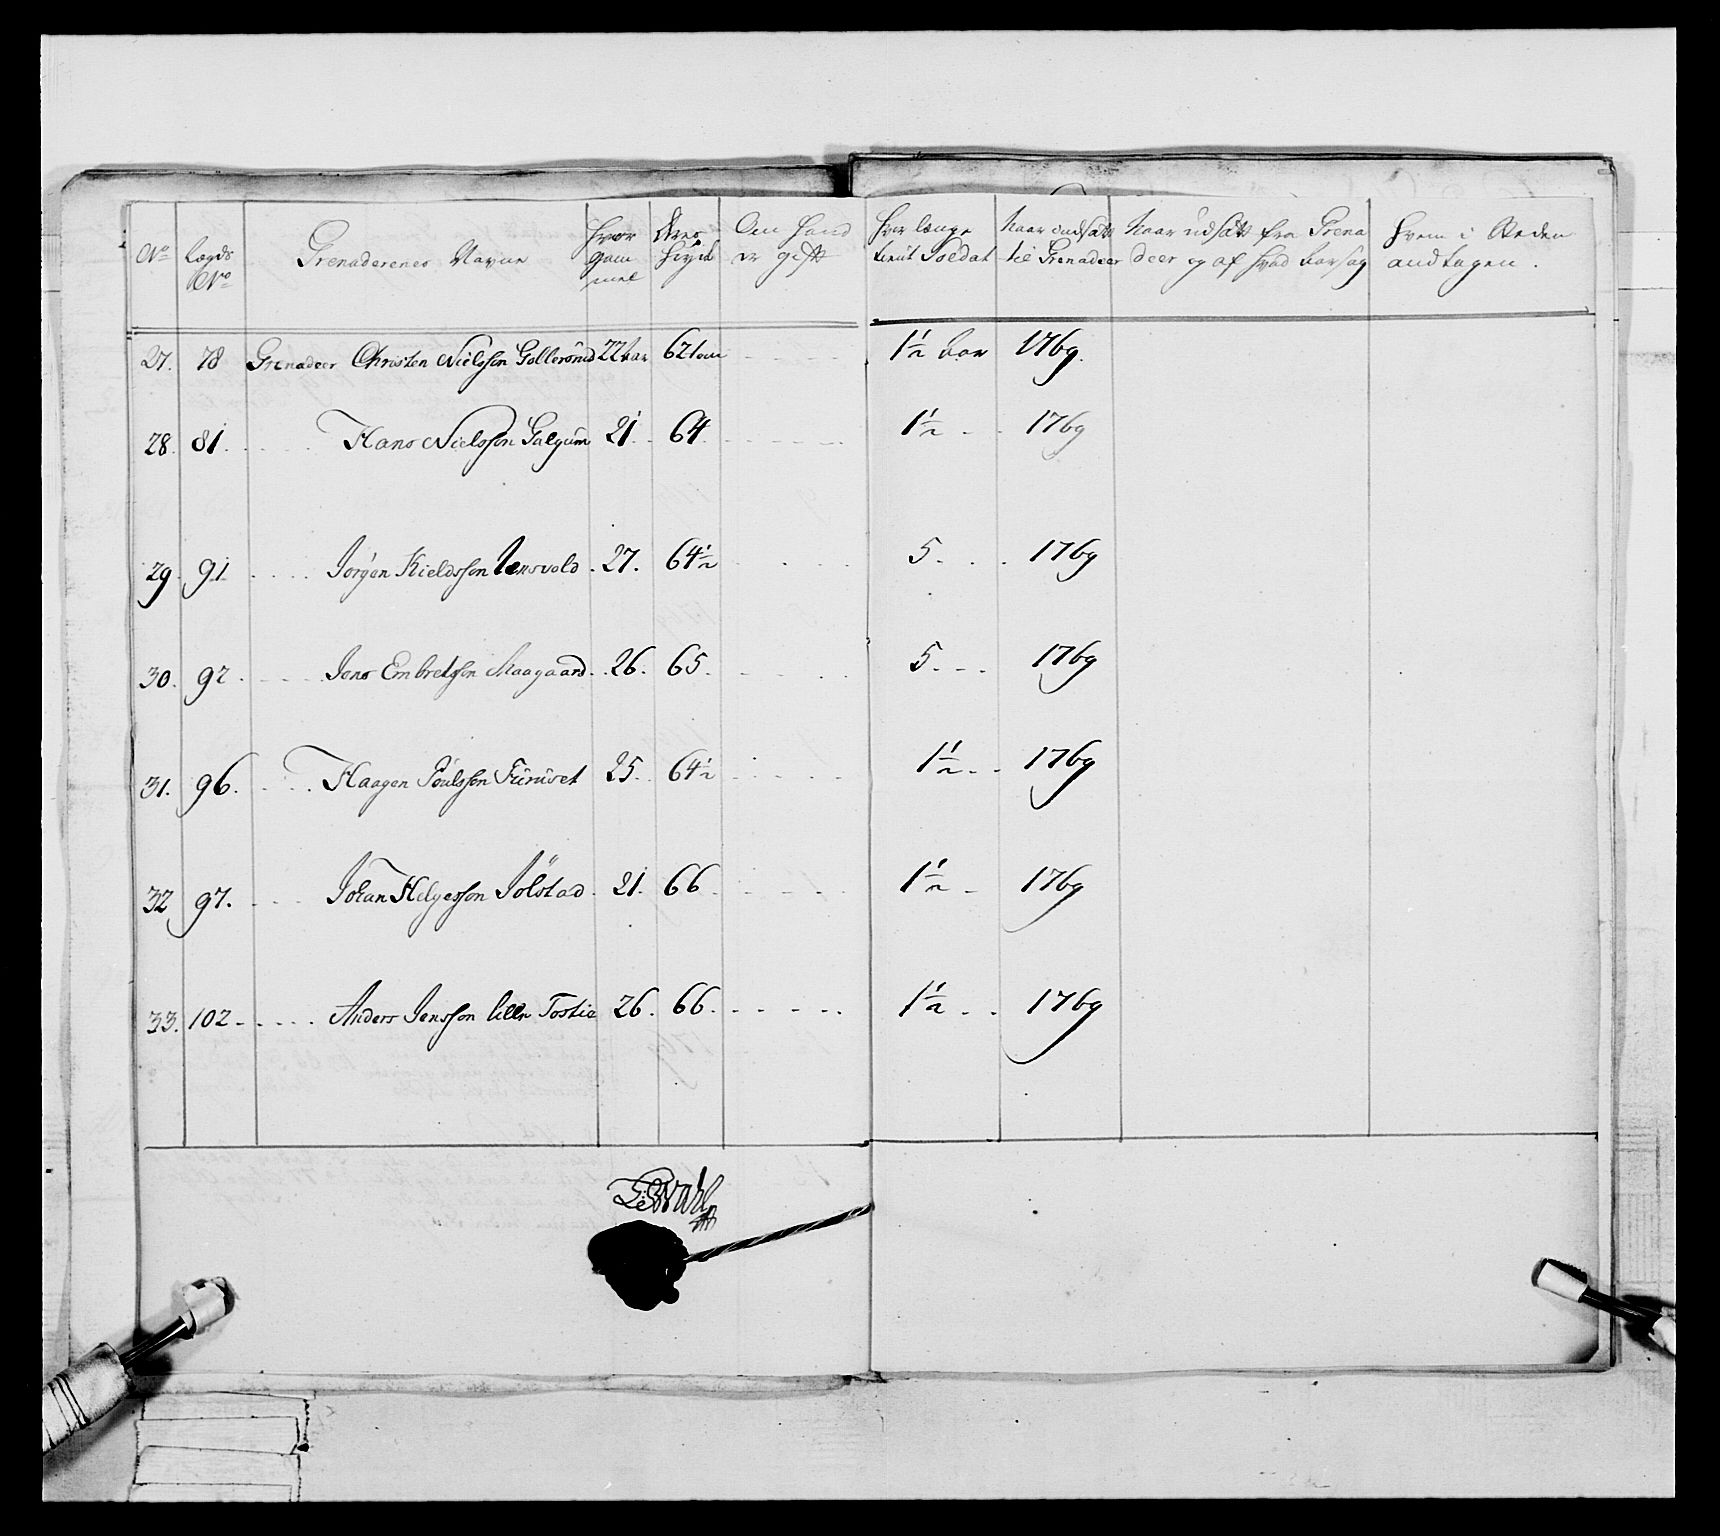 No
Lægds No
Grenaderenes Navne
Hvor gam mel
Deres Høyde
Om hand er gift
Hvor længe tient Soldat
Naar indsatt til Grenadeer
Naar udsatt fra Grena deer og af hvad Aarsag
Hvem i Steden andtagen.
27. 78 Grenadeer Christen Nielsson Gollerønd 22 aar 62 Tom 1½ Aar 1769.
28. 81. Hans Nielsson Galgum 21. 64 1½ 1769
29 91 Jørgen Kieldsson Jensvold 27. 64½ 5. 1769
30. 92. Jens Embretsson Maagaard 26. 65. 5. 1769
31. 96. Haagen Poulsson Furuset 25. 64½ 1½ 1769
32 97. Johan Helgesson Jølstad 21. 66 1½ 1769
33. 102 Anders Jensson Lille Tostie 26. 66. 1½ 1769